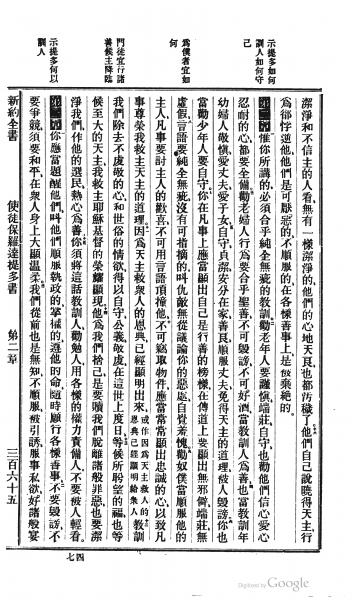 示提多如何
訓人如何守
己
為僕者宜如
何
門徒宜行諸
善候主降臨
示提多何以
訓人
潔淨和不信主的人看無有一樣潔淨的他們的心地天良也都汚穢了他們自己說曉得天主行
為卻悖逆他他們是可厭惡的不順服的在各樣善事上是被棄絕的
第二章惟你所講的必須合乎純全無疵的敎訓勸老年人要謹愼端莊自守也勸他們信心愛心
忍耐的心都要全備勸老婦人行為要合乎聖善不可毀謗不可好酒當敎訓人為善也當敎訓年
幼婦人敬愼愛丈夫愛子女自守貞潔安分在家善良順服丈夫免得天主的道理被人毀謗你也
當勸少年人要自守你在凡事上應當顯出自己是行善的榜樣在傳道上要顯出無邪僻端莊無
虛假言語要純全無疵沒有可指摘的叫仇敵無從議論你的惡處自覺羞愧勸奴僕當順服他的
主人凡事要討主人的歡喜不可用言語頂撞他不可竊取物件應當常常顯出忠誠的心以致凡
事尊榮我救主天主的道理因為天主救衆人的恩典已經顯明出來或作因為天主救人的恩典已經顯明給衆人敎訓
我們除去不虔敬的心和世俗的情欲得以自守公義敬虔在這世上度日等候所盼望的福也等
候至大的天主我救主耶穌基督的榮耀顯現他為我們捨己是要贖我們脫離諸般罪惡也要潔
淨我們作他的選民熱心為善你須將這話敎訓人勸勉人用各樣的權力責備人不要被人輕看
第三章你應當題醒他們叫他們順服執政的掌權的遵他的命隨時願行各樣善事不要毀謗不
要爭競須要和平在衆人身上大顯溫柔我們從前也是無知不順服被引誘服事私欲好諸般宴
新約全書 使徒保羅達提多書 第二章 三百六十五
四七
Digitized by Google